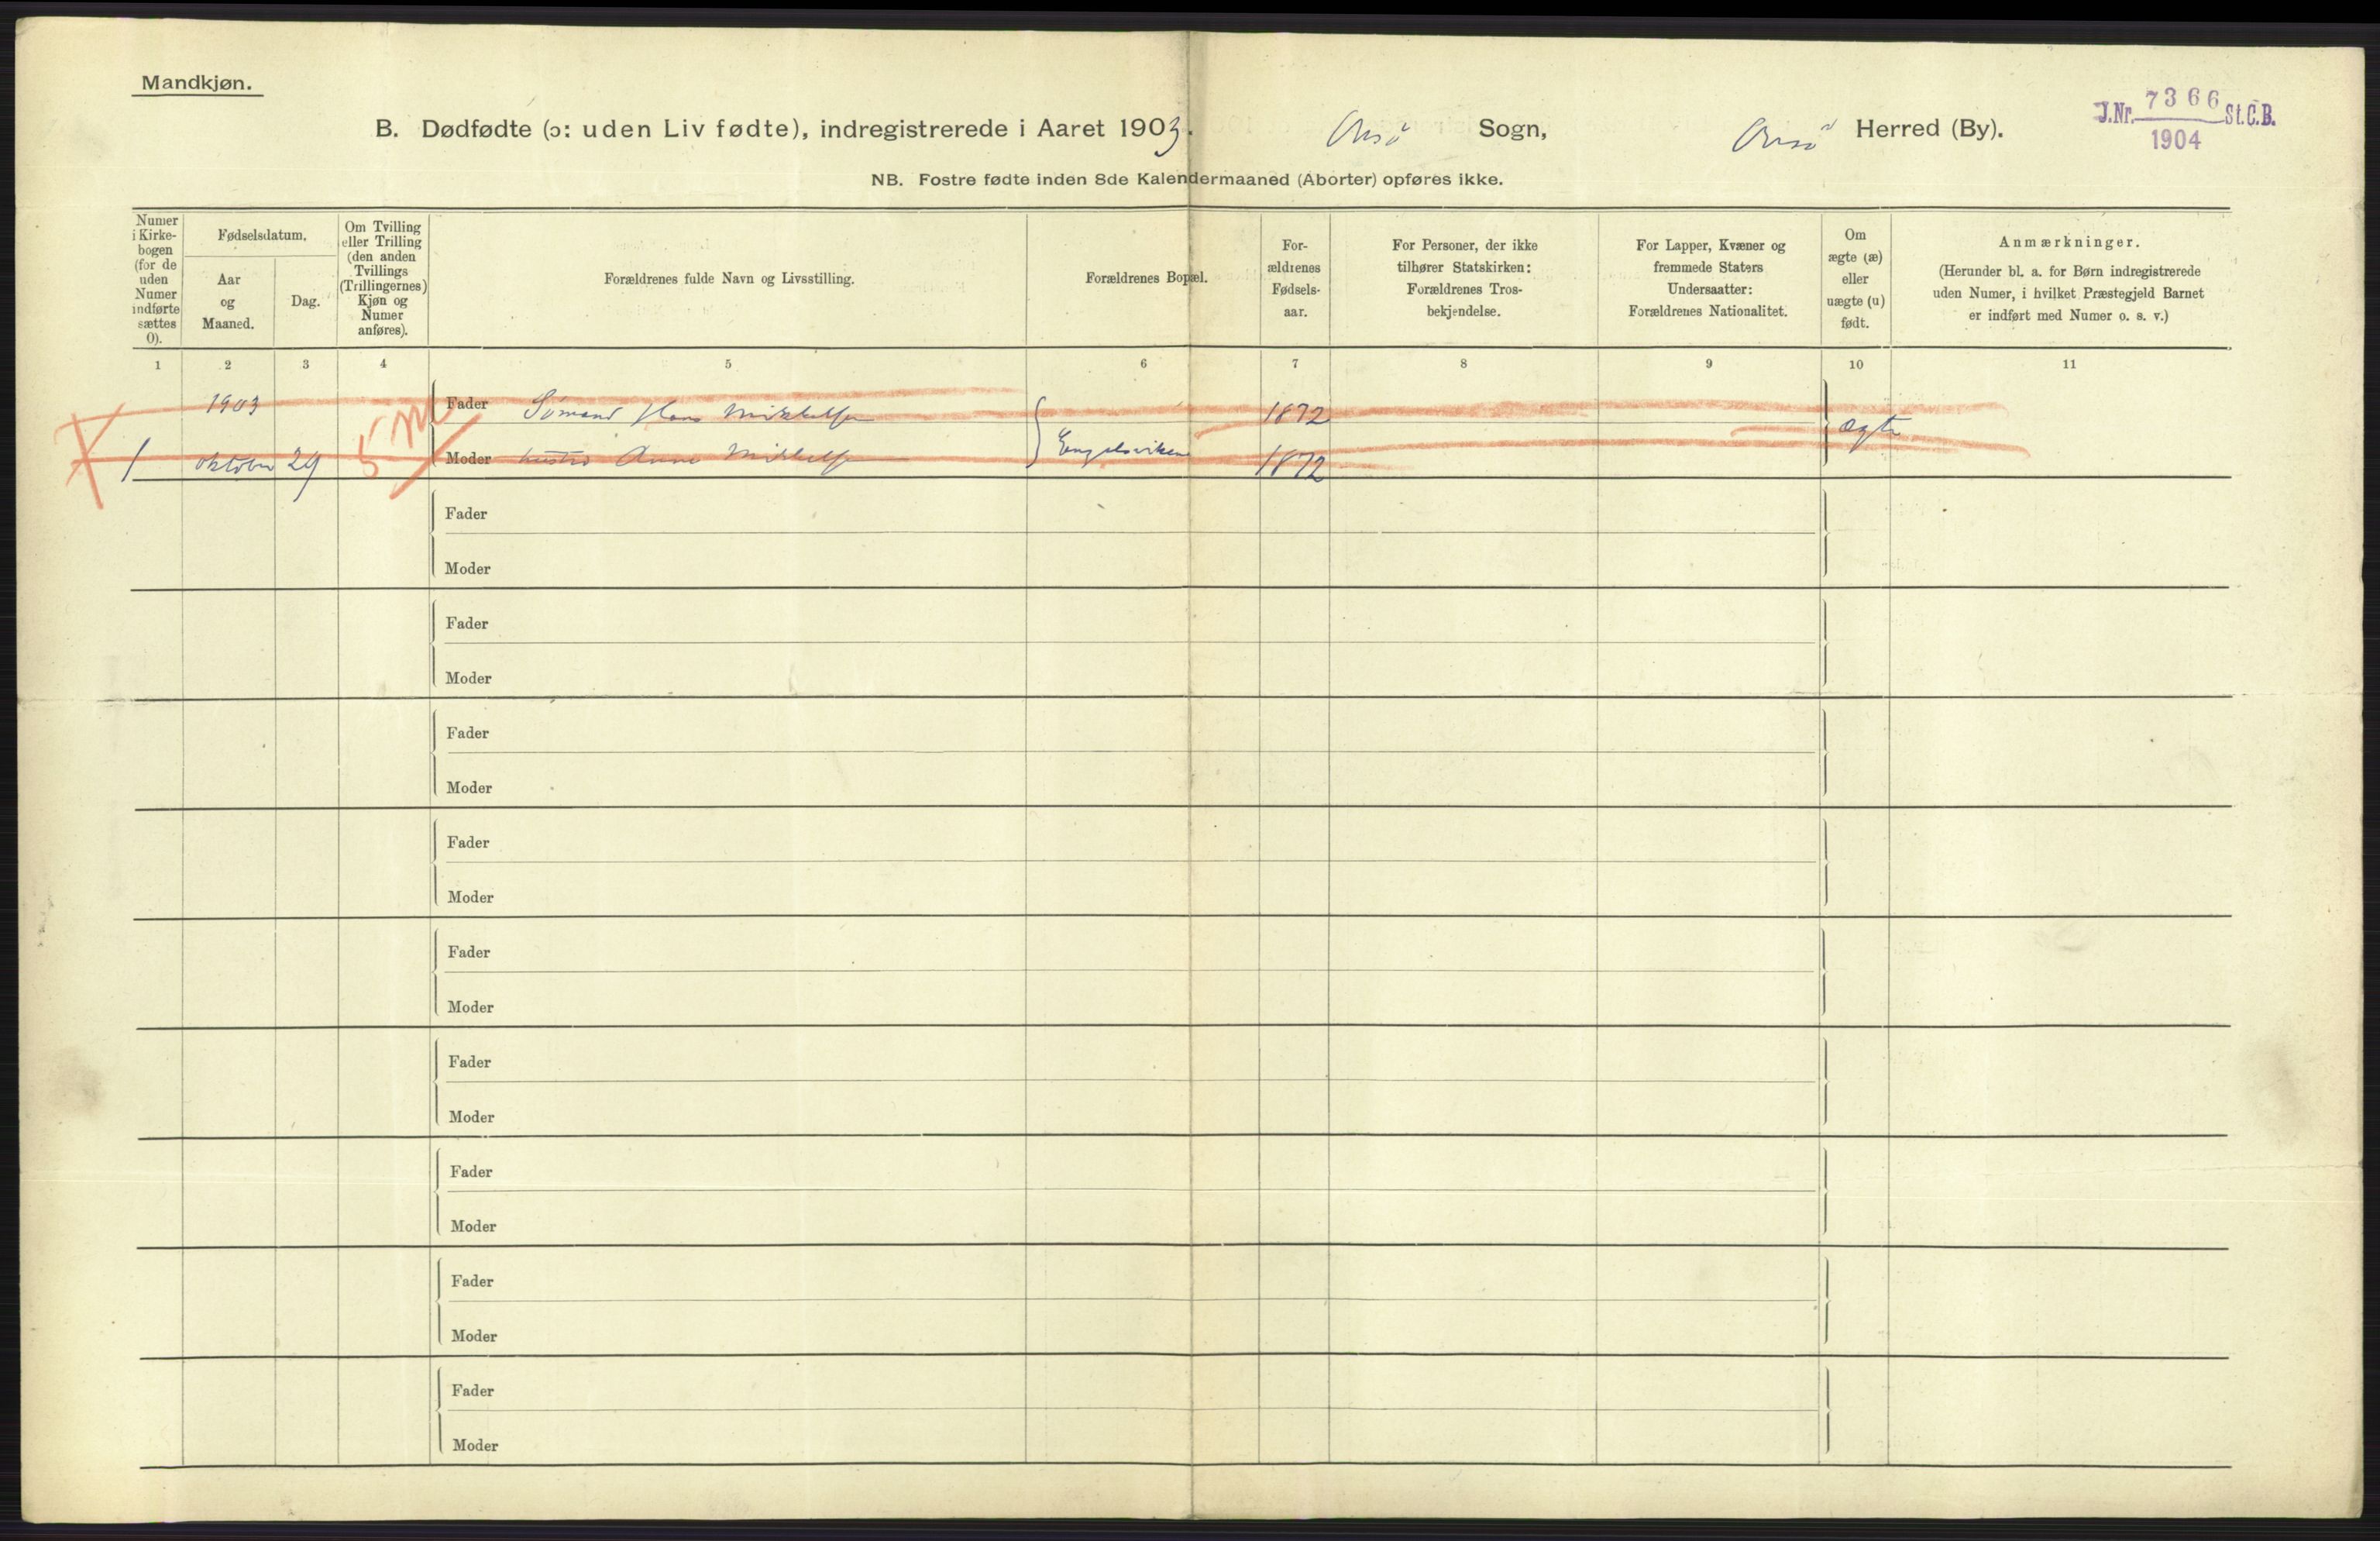 Mandkjøn.
B. Dødfødte (ɔ: uden Liv fødte), indregistrerede i Aaret 1903. Onsö Sogn, Onsö Herred (By).
J.Nr. 7366 St.C.B.
1904
NB. Fostre fødte inden 8de Kalendermaaned (Aborter) opføres ikke.
Numer i Kirke-bogen (for de uden Numer indførte sættes 0).
Fødselsdatum.
Aar og Maaned.
Dag.
Om Tvilling eller Trilling (den anden Tvillings (Trillingernes) Kjøn og Numer anføres).
Forældrenes fulde Navn og Livsstilling.
Forældrenes Bopæl.
For-ældrenes Fødsels-aar.
For Personer, der ikke tilhører Statskirken: Forældrenes Tros-bekjendelse.
For Lapper, Kvæner og fremmede Staters Undersaatter: Forældrenes Nationalitet.
Om ægte (æ) eller uægte (u) født.
Anmærkninger.
(Herunder bl. a. for Børn indregistrerede uden Numer, i hvilket Præstegjeld Barnet er indført med Numer o. s. v.)
1 2 3 4 5 6 7 8 9 10 11
1903 Fader Sömand Hans Mikkelsen 1872
5 m
ægte
1 oktober 29 Moder hustru Anne Mikkelsen Engelsviken 1872
Fader
Moder
Fader
Moder
Fader
Moder
Fader
Moder
Fader
Moder
Fader
Moder
Fader
Moder
Fader
Moder
Fader
Moder